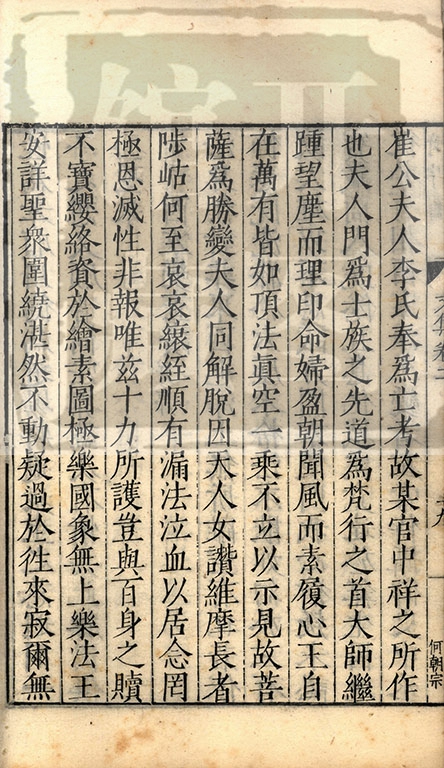 崔公夫人李氏奉爲亡考故某官中祥之所作
也夫人門爲士族之先道爲梵行之首大師繼
踵望塵而理印命婦盈朝聞風而素履心王自
在萬有皆如頂法眞空一乘不立以示見故菩
薩爲勝變夫人同解脫因天人女讚維摩長者
陟岵何至哀哀縗絰順有漏法泣血以居念罔
極恩滅性非報唯兹十力所護豈與百身之贖
不寶纓絡資於繪素圖極樂國象無上樂法王
安詳聖衆圍繞湛然不動疑過於徃來寂爾無
何朝宗